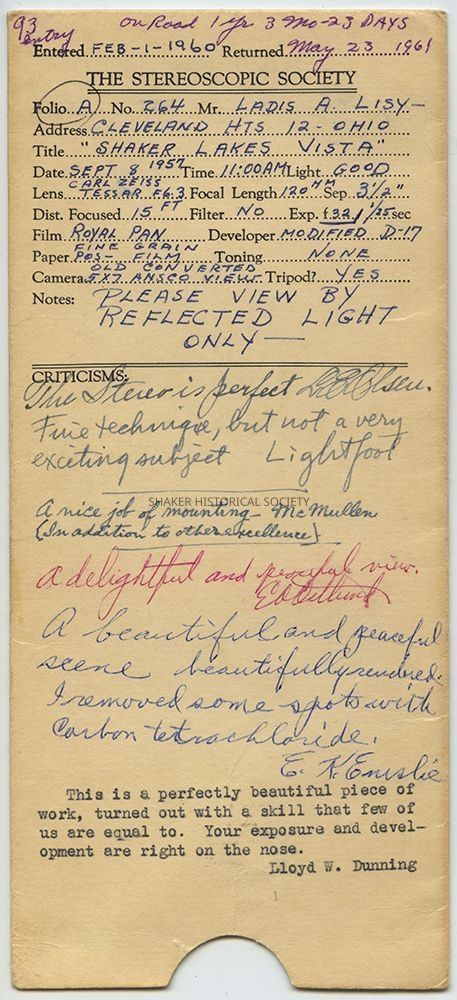 93 on Road 1 yr 3 Mo-23 DAYS
entry
Entered FEB-1-1960 Returned May 23 1961
THE STEREOSCOPIC SOCIETY
Folio A No. 264 Mr. LADIS A. LISY-
Address CLEVELAND HTS 12-OHIO
Title "SHAKER LAKES VISTA"
Date SEPT 8 1957 Time 11:00AM Light GOOD
Lens CARL ZEISS TESSAR F6.3 Focal Length 120 MM Sep 3 1/2"
Dist. Focused 15 FT Filter NO Exp. f32 1/25 sec
Film ROYAL PAN Developer MODIFIED D-17
Paper FINE GRAIN POS- FILM Toning NONE
Camera OLD CONVERTED 5X7 ANSCO VIEW Tripod? YES
Notes: PLEASE VIEW BY
REFLECTED LIGHT
ONLY—
CRITICISMS:
The Stereo is perfect L.B. Olsen.
Fine technique, but not a very
exciting subject Lightfoot
SHAKER HISTORICAL SOCIETY
A nice job of mounting - McMullen
(In addition to other excellence)
A delightful and peaceful view.
A beautiful and peaceful
scene beautifully rendered.
I removed some spots with
Carbon tetrachloride.
E. K. Emslie
This is a perfectly beautiful piece of
work, turned out with a skill that few of
us are equal to. Your exposure and devel-
opment are right on the nose.
Lloyd W. Dunning